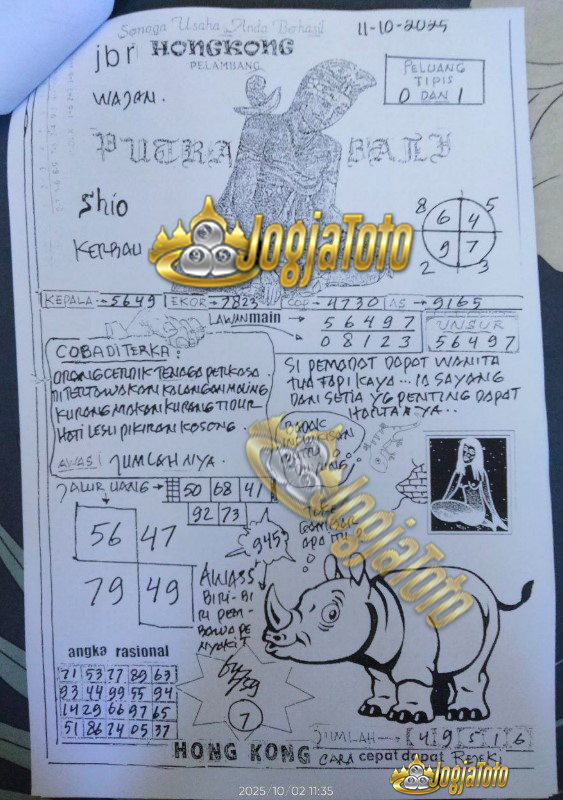 Semoga Usaha Anda Berhasil
11-10-2025
jbr HONGKONG
PELAMBANG.
PELUANG
TIPIS
0 DAN 1
WAJAN.
PUTRA BALI
Shio
KERBAU
8 5
6 4
9 7
2 3
JogjaToto
KEPALA → 5649 EKOR → 7823 COP → 4730 AS → 9165
LAWAN main → 5 6 4 9 7
0 8 1 2 3
UNSUR
56497
COBA DITERKA:
ORANG CERDIK TENAGA PERKOSA
DITERTAWAKAN KALANGAN MALING
KURANG MAKAN KURANG TIDUR
HATI LESU PIKIRAN KOSONG.
AWAS! JUMLAHNYA.
SI PEMADAT DAPAT WANITA
TUA TAPI KAYA... IA SAYANG
DAN SETIA YG PENTING DAPAT
HARTANYA..
BADAK
JALUR UANG → 50 68 41
92 73
945
GAMBAR
APA ITU?
JogjaToto
56 47
79 49
AWASS
BIRI-BI
RI PEM-
BAWA PE
NYAKIT
64/39
7
angka rasional
71 53 77 89 63
93 44 99 55 94
14 29 66 97 65
51 86 74 05 37
JUMLAH → 4 9 5 1 6
HONG KONG CARA cepat dapat
JogjaToto
2025/10/02 11:35